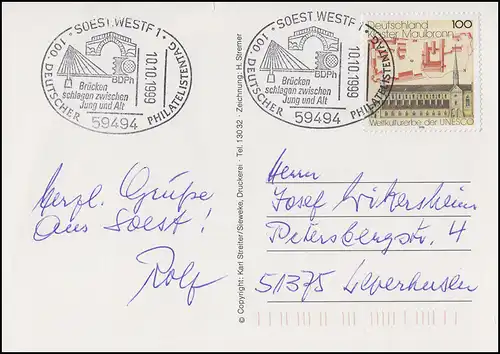 SOEST, WESTF 1
100. DEUTSCHER PHILATELISTENTAG
10.10.1999
BDPh
Brücken
schlagen zwischen
Jung und Alt
59494
SOEST, WESTF 1
100. DEUTSCHER PHILATELISTENTAG
10.10.1999
BDPh
Brücken
schlagen zwischen
Jung und Alt
59494
Deutschland 100
Kloster Maulbronn
Weltkulturerbe der UNESCO
Herzl. Grüße
aus Soest!
Rolf
© Copyright: Karl Streiter/Sieweke, Druckerei · Tel. 13032 · Zeichnung: H. Stremer
Herrn
Josef Wikersheim
Petersbergstr. 4
51375 Leverkusen